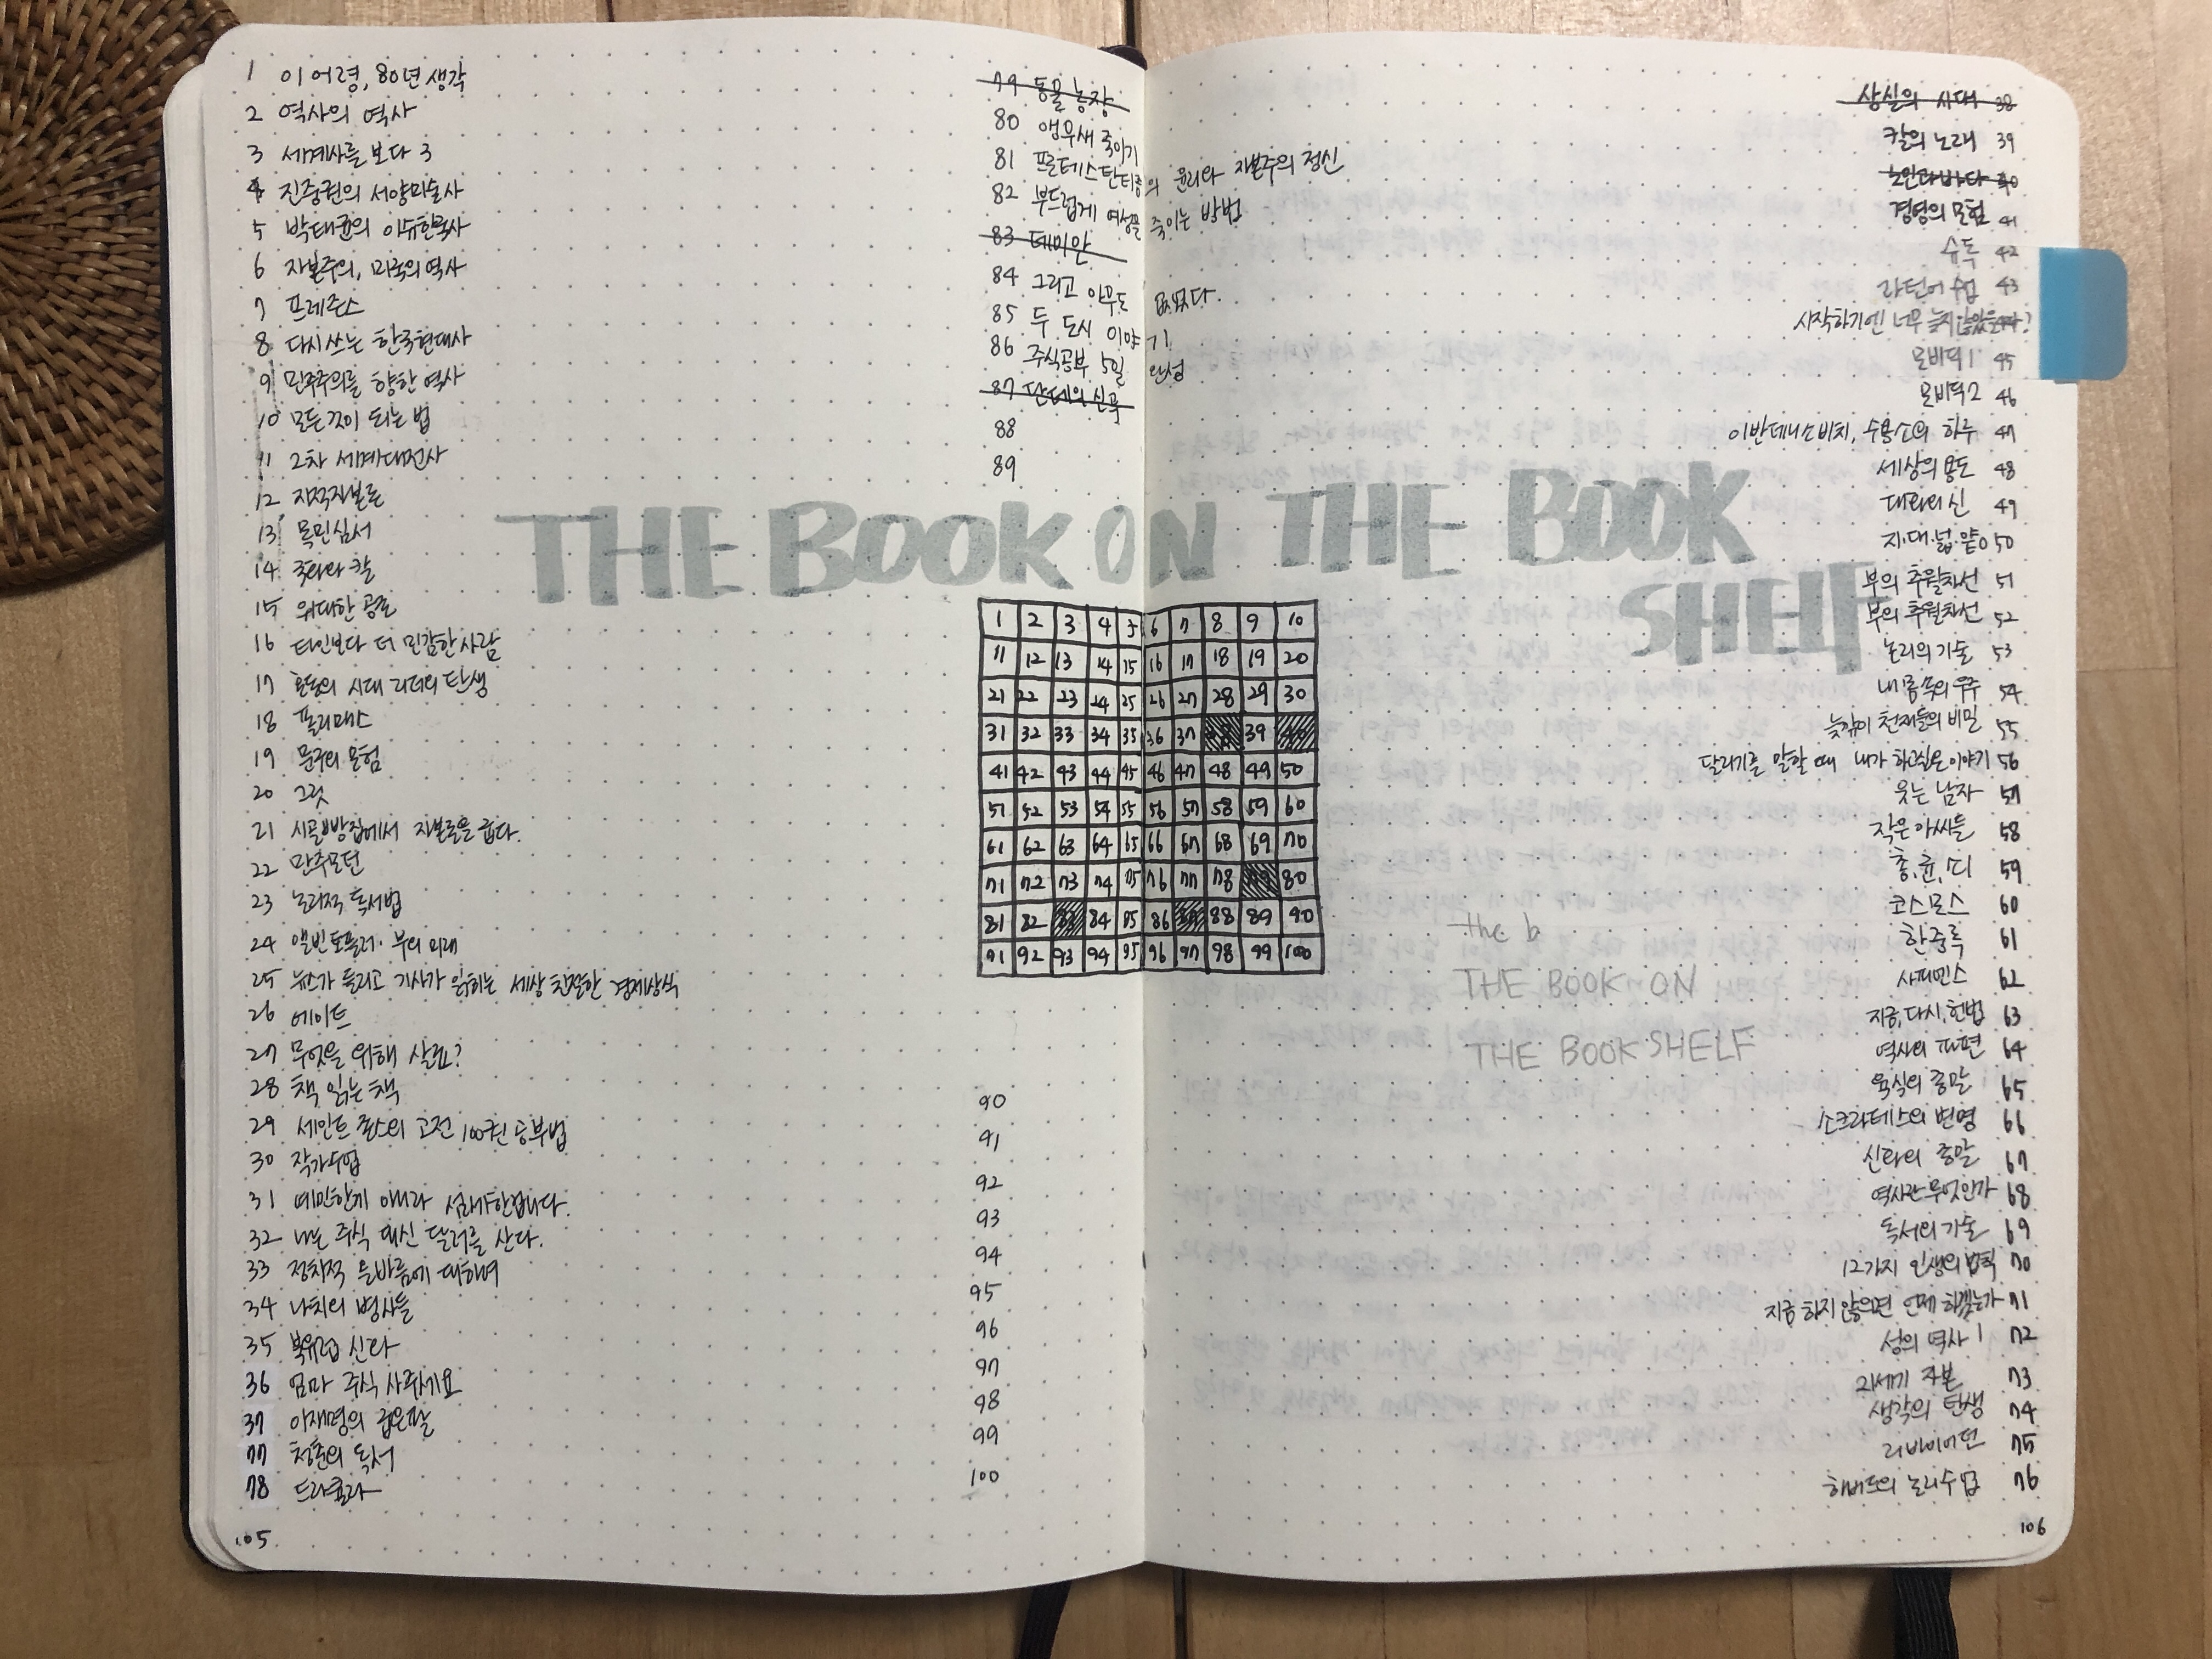 1 이어령, 80년 생각
2 역사의 역사
3 세계사를 보다 3
4 진중권의 서양미술사
5 박태균의 이슈한국사
6 자본주의, 미국의 역사
7 프레준스
8 다시 쓰는 한국현대사
9 민주주의를 향한 역사
10 모든 것이 되는 법
11 2차 세계대전사
12 지적자본론
13 목민심서
14 국화와 칼
15 위대한 공존
16 타인보다 더 민감한 사람
17 혼돈의 시대 리더의 탄생
18 폴리매스
19 문주의 모험
20 그릿
21 시골빵집에서 자본론을 굽다.
22 만주모던
23 논리적 독서법
24 앨빈 토플러. 부의 미래
25 뉴스가 들리고 기사가 읽히는 세상 친절한 경제상식
26 에이트
27 무엇을 위해 살죠?
28 책 읽는 책
29 세인트 존스의 고전 100권 공부법
30 작가수업
31 예민한게 아니라 섬세한겁니다.
32 나는 주식 대신 달러를 산다.
33 정치적 올바름에 대하여
34 나치의 병사들
35 북유럽 신화
36 엄마 주식 사주세요
37 이재명의 굽은팔
77 청춘의 독서
78 드라큘라
105
79 동물 농장
80 앵무새 죽이기
81 프로테스탄티즘의 윤리와 자본주의 정신
82 부드럽게 여성을 죽이는 방법
83 데미안
84 그리고 아무도 없었다.
85 두 도시 이야기
86 주식공부 5일 완성
87 단테의 신곡
88
89
THE BOOK ON THE BOOK
SHELF
1 2 3 4 5 6 7 8 9 10
11 12 13 14 15 16 17 18 19 20
21 22 23 24 25 26 27 28 29 30
31 32 33 34 35 36 37 38 39 40
41 42 43 44 45 46 47 48 49 50
51 52 53 54 55 56 57 58 59 60
61 62 63 64 65 66 67 68 69 70
71 72 73 74 75 76 77 78 79 80
81 82 83 84 85 86 87 88 89 90
91 92 93 94 95 96 97 98 99 100
the b
THE BOOK ON
THE BOOK SHELF
90
91
92
93
94
95
96
97
98
99
100
상실의 시대 38
칼의 노래 39
노인과 바다 40
경영의 모험 41
슈독 42
라틴어 수업 43
시작하기엔 너무 늦지 않았을까?
모비딕 1 45
모비딕 2 46
이반데니소비치, 수용소의 하루 47
세상의 용도 48
대화의 신 49
지.대.넓.얕 0 50
부의 추월차선 51
부의 추월차선 52
논리의 기술 53
내 몸 속의 우주 54
늦깎이 천재들의 비밀 55
달리기를 말할 때 내가 하고싶은 이야기 56
웃는 남자 57
작은 아씨들 58
총, 균, 쇠 59
코스모스 60
한중록 61
사피엔스 62
지금, 다시, 헌법 63
역사의 파편 64
육식의 종말 65
소크라테스의 변명 66
신화의 종말 67
역사란 무엇인가 68
독서의 기술 69
12가지 인생의 법칙 70
지금 하지 않으면 언제 하겠는가 71
성의 역사 1 72
21세기 자본 73
생각의 탄생 74
리바이어던 75
하버드의 논리수업 76
106